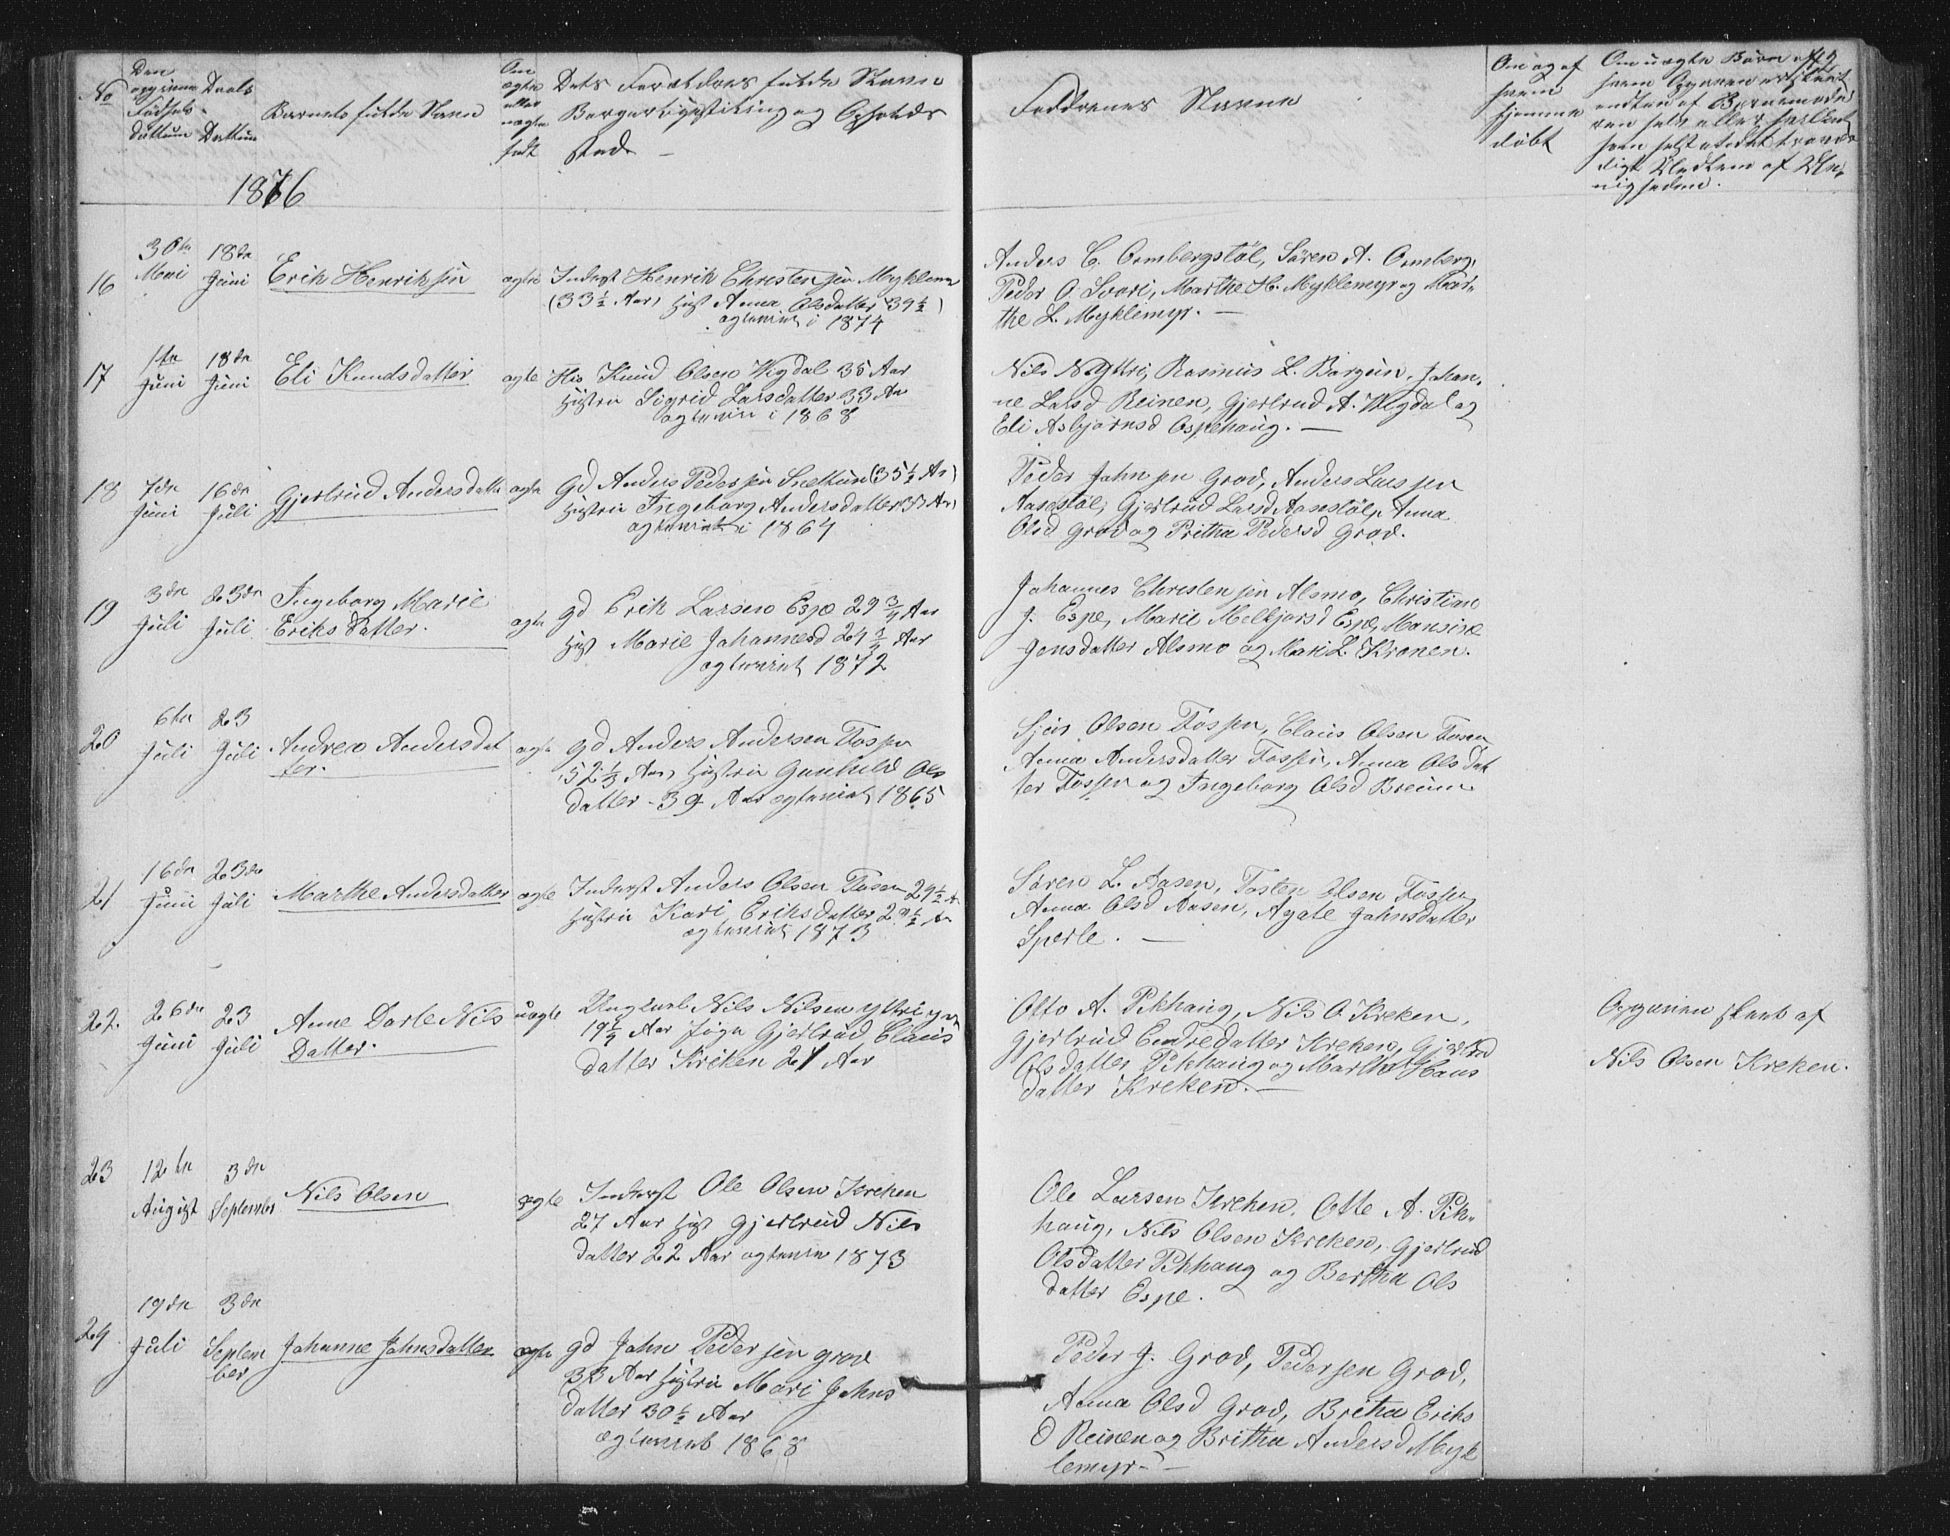 No
Den
opgivne
Fødsels-
Dattum
Daabs
Dattum
Barnets fulde Navn
Om
ægte
eller
uægte
født
Dets Forældres fulde Navn
Borgerlige Stilling og Opholds
sted
Faddrenes Navne
Om og af
hvem
hjemme
døbt
Om uægte Børn af
hvem Opgaven er skeet
1876
16
30te
Mai
18de
Juni
Erik Henriksen
ægte
Inderst Henrik Christensen Myklemyr
(33½ Aar) Hust Anna Olsdatter 39½)
ægteviet i 1874
Anders C. Ormbergstöl, Sören A. Ormberg,
Peder O. Svori, Marthe H. Myklemyr og Mar-
the L. Myklemyr.
17
1te
Juni
18de
Juni
Eli Knudsdatter
ægte
Hm Knud Olsen Wigdal 35 Aar
Hustru Sigrid Larsdatter 33 Aar
ægteviet i 1868
Nils N Yttri, Rasmus L. Bargun, Johan-
ne Larsd Reinen, Gjertrud A. Wigdal og
Eli Asbjørnsd Ospehaug.
18
7de
Juni
16de
Juli
Gjertrud Andersdatter
ægte
Gd Anders Pedersen Snettun (35½ Ar)
Hustru Ingeborg Andersdatter (37 Ar)
ægteviet i 1867
Peder Jahnsen Grov, Anders Larssen
Aasestöl, Gjertrud Larsd Aasestöl, Anna
Olsd Grov og Britha Pedersd Grov.
19
3de
Juli
23de
Juli
Ingeborg Marie
Eriksdatter.
ægte
Gd Erik Larsen Espe 29¾ Aar
Hust Marie Johannesd 24½ Aar
ægteviet 1872
Johannes Christensen Alsmo, Christian
J. Espe, Marie Melkjorsd Espe, Mansine
Jensdatter Alsmo og Mari L. Kronen.
20
6te
Juli
23
Juli
Andrea Andersdat
ter.
ægte
Gd Anders Andersen Fossen
52⅓ Aar, Hustru Gunhild Ols
datter - 39 Aar ægteviet 1865
Sjur Olsen Fossen, Claus Olsen Fosen
Anna Andersdatter Fossen, Anna Olsdat
ter Fossen og Ingeborg Olsd Breum
21
16de
Juni
23de
Juli
Marthe Andersdatter
ægte
Inderst Anders Olsen Fosen 29½ A
Hustru Kari Eriksdatter 2 ½ Ar
ægteviet 1873
Søren L. Aasen, Tosten Olsen Fossen
Anna Olsd Aasen, Agate Jahnsdatter
Sperle.
22.
26de
Juni
23
Juli
Anne Dorte Nils
Datter.
uægte
Ungkarl Nils Nilsen Yttri
19½ Aar Pige Gjertrud Claus
datter Kreken 24 Aar
Otto A. Pikhaug, Nils O. Kreken,
Gjertrud Endredatter Kreken, Gjertrud
Olsdatter Pikhaug og Marthe Hans
datter Kreken.
Opgaven skeet af
Nils Olsen Kreken.
23
12te
August
3de
September
Nils Olsen
ægte
Inderst Ole Olsen Kreken
27 Aar Hust Gjertrud Nils
datter 22 Aar ægteviet 1873
Ole Larsen Kreken, Otte A. Pik-
haug, Nils Olsen Kreken, Gjertrud
Olsdatter Pikhaug og Bertha Ols
datter Espe.
24
19de
Juli
3de
Septem
ber
Johanne Jahnsdatter
ægte
Gd Jahn Pedersen Grov
33 Aar Hustru Mari Jahns
datter 30½ Aar
ægteviet 1868
Peder J. Grov, Pedersen Grov,
Anna Olsd Grov, Britha Eriks
D Reinen og Britha Andersd Myk
lemyr.